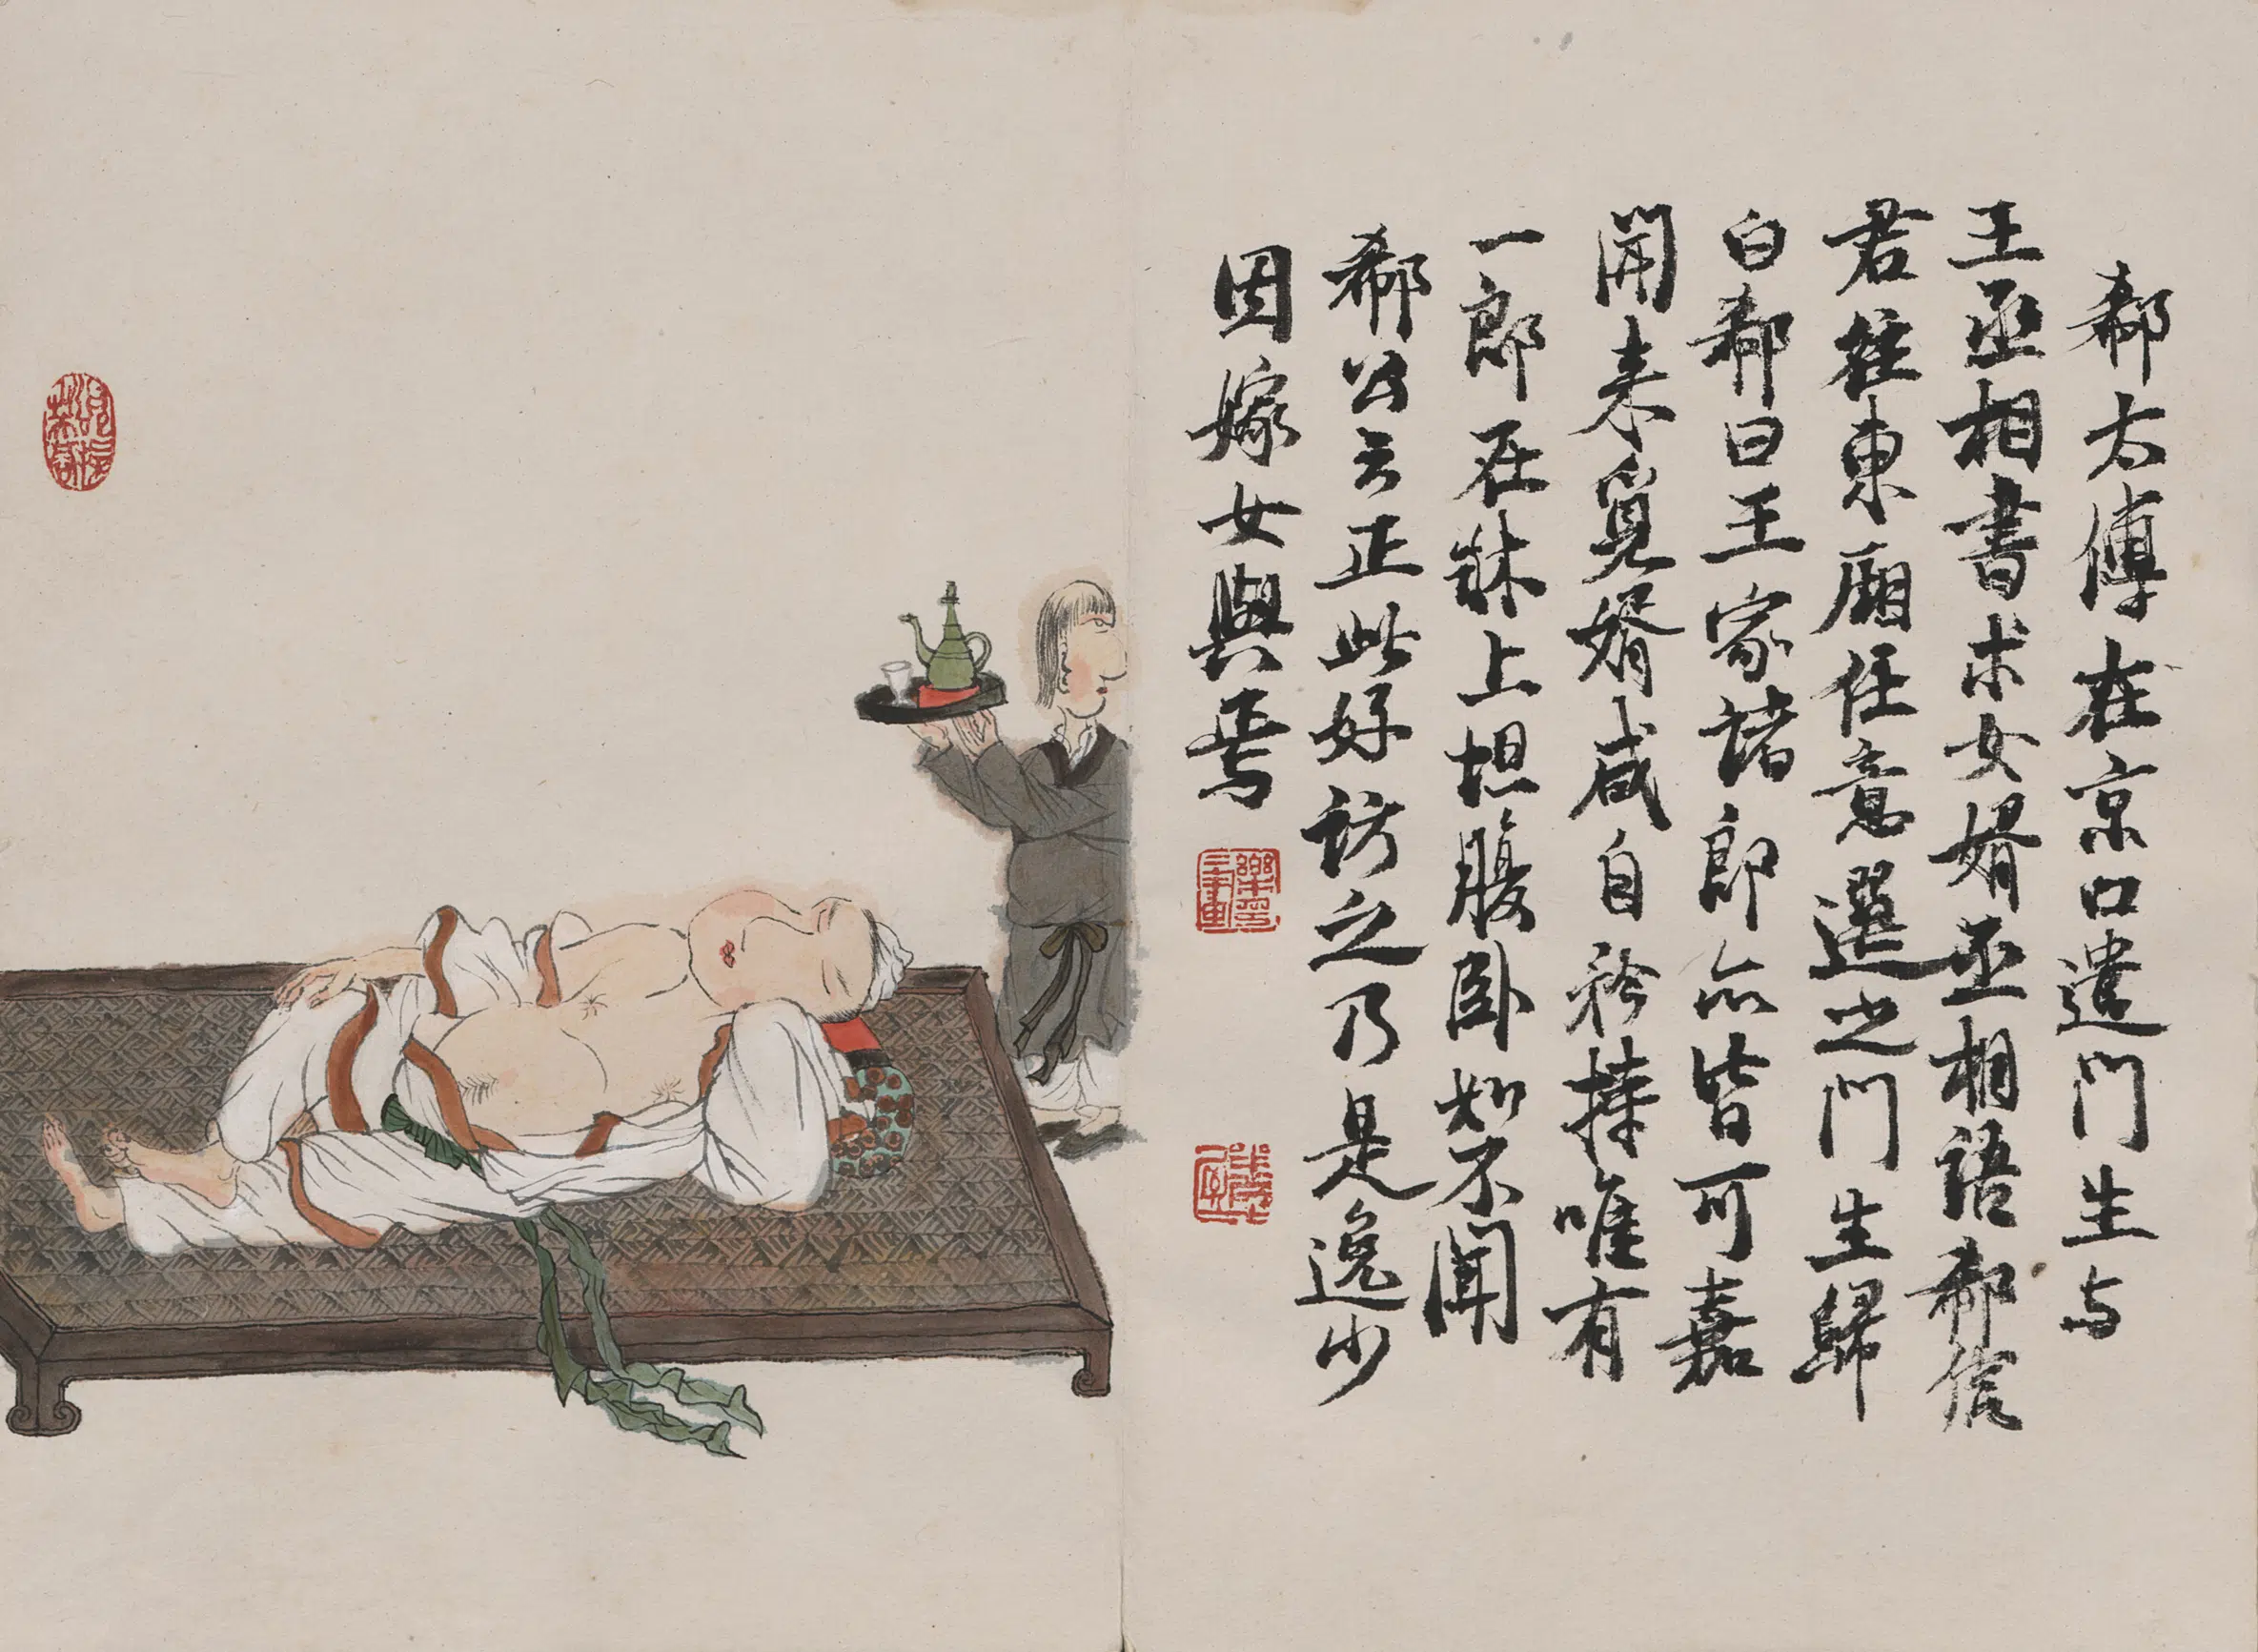 郗太傅在京口遣门生与
王丞相書求女婿丞相語郗信
君往東廂任意選之门生歸
白郗曰王家諸郎亦皆可嘉
開来覓婿咸自矜持唯有
一郎在牀上坦腹卧如不聞
郗公云正此好訪之乃是逸少
因嫁女與焉